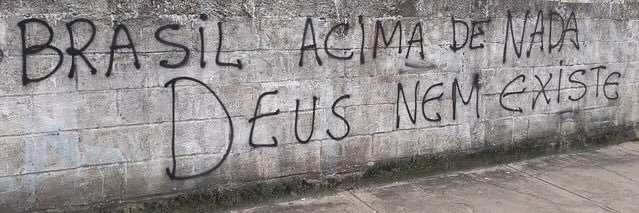 BRASiL ACiMA DE NADA
DEUS NEM EXiSTE